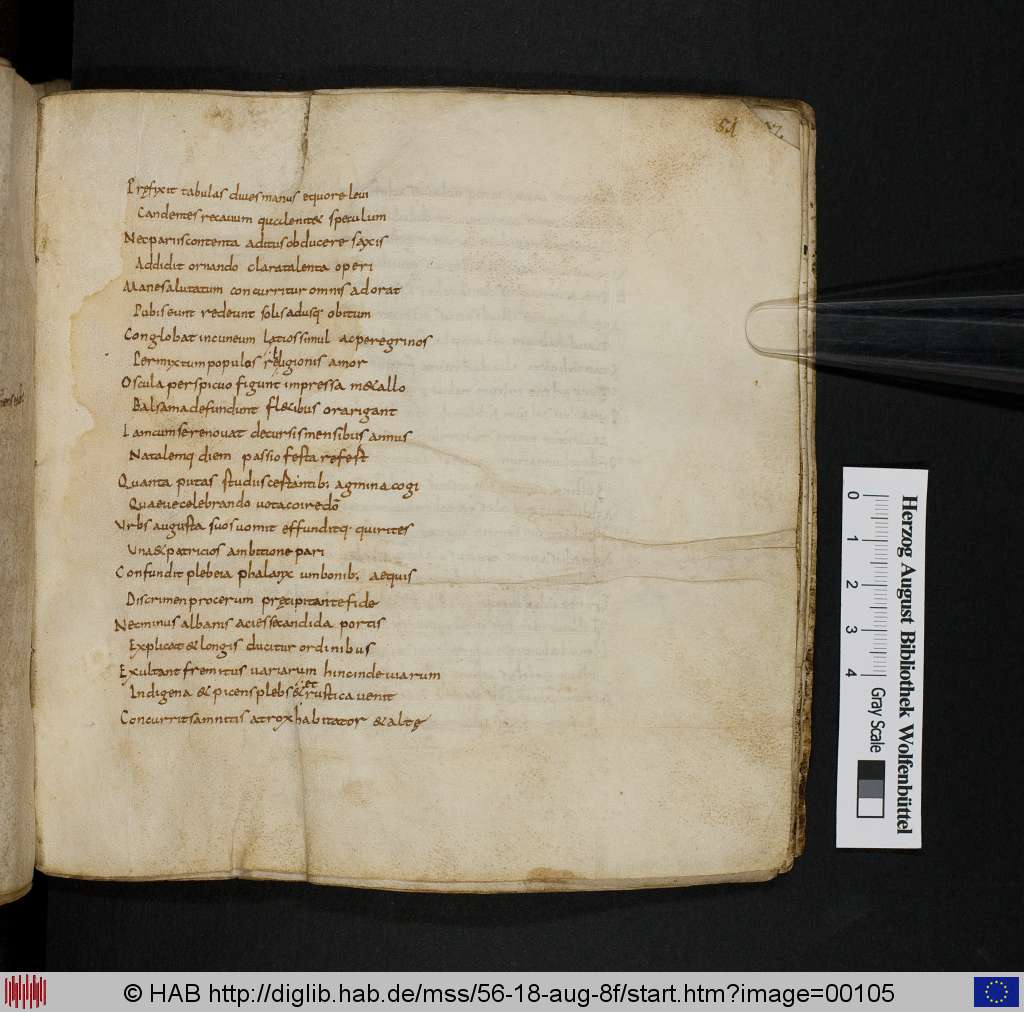 51
Pręfyxit tabulas diues manus equore leui
Candentes recauum qu& speculum
Nec pariis contenta aditus obducere saxis
Addidit ornando clara talenta operi
Mane salutatum concurritur omnis adorat
Pubis eunt redeunt solis adusq; obitum
Conglobat in cuneum latios simul ac peregrinos
Permyxtum populos religionis amor
Oscula perspicuo figunt impressa m&allo
Balsama defundunt fl&ibus ora rigant
Iam cum se renouat decursis mensibus annus
Natalemq diem passio festa refert
Quanta putas studiis certantib; agmina cogi
Quaeue celebrando uota coire dō
Vrbs augusta suos uomit effunditq; quirites
Una & patricios ambitione pari
Confundit plebeia phalanx umbonib; aequis
Discrimen procerum pręcipitante fide
Nec minus albanis acies se candida portis
Explicat & longis ducitur ordinibus
Exultant fremitus uariarum hinc inde uiarum
Indigena & picens plebs & et rustica uenit
Concurrit samnitis atrox habitator & altę
Herzog August Bibliothek Wolfenbüttel
0 1 2 3 4
Gray Scale
© HAB http://diglib.hab.de/mss/56-18-aug-8f/start.htm?image=00105